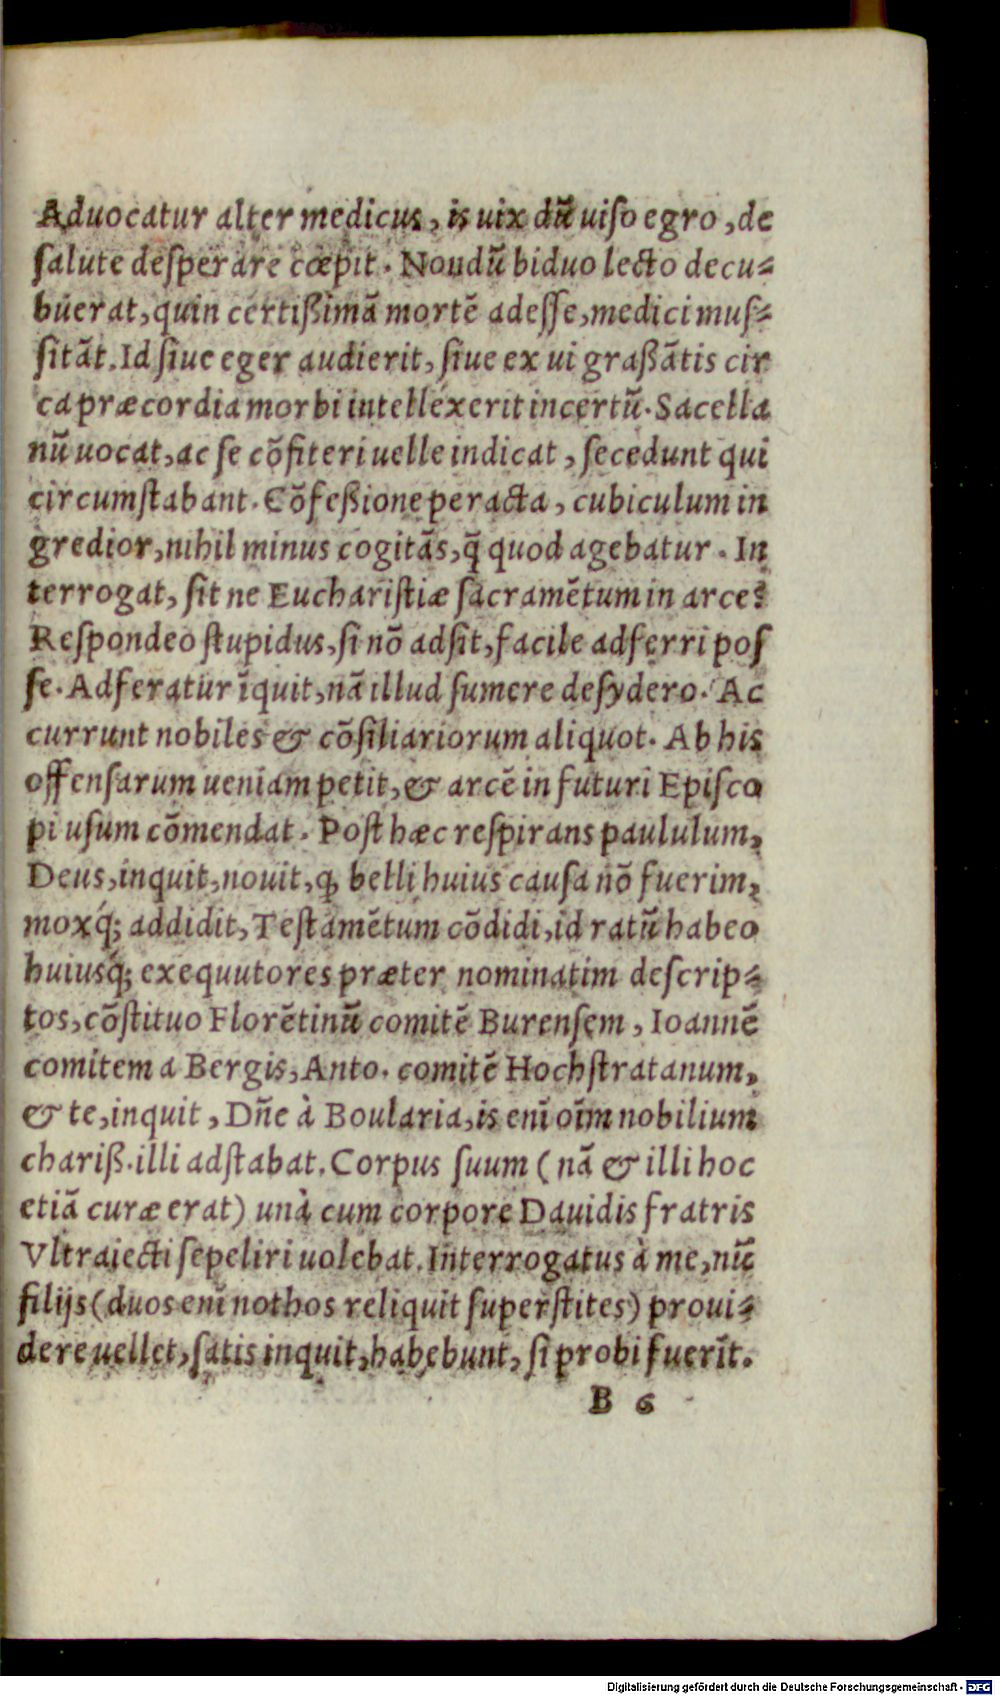 Aduocatur alter medicus, is uix dũ uiſo egro, de
ſalute deſperare cœpit. Nondũ biduo lecto decu-
buerat, quin certiſſimã mortẽ adeſſe, medici muſ-
ſitãt. Id ſiue eger audierit, ſiue ex ui graßãtis cir
ca præcordia morbi intellexerit incertũ. Sacella
nũ uocat, ac ſe cõfiteri uelle indicat, ſecedunt qui
circumſtabant. Cõfeßione peracta, cubiculum in
gredior, nihil minus cogitãs, q̃ quod agebatur. In
terrogat, ſit ne Euchariſtiæ ſacramẽtum in arce?
Reſpondeo ſtupidus, ſi nõ adſit, facile adferri poſ
ſe. Adferatur ĩquit, nã illud ſumere deſydero. Ac
currunt nobiles & cõſiliariorum aliquot. Ab his
offenſarum ueniam petit, & arcẽ in futuri Epiſco
pi uſum cõmendat. Poſt hæc reſpirans paululum,
Deus, inquit, nouit, ꝙ belli huius cauſa nõ fuerim,
moxq́; addidit, Teſtamẽtum cõdidi, id ratũ habeo
huiusq́; exequutores præter nominatim deſcrip-
tos, cõſtituo Florẽtinũ comitẽ Burenſem, Ioannẽ
comitem a Bergis, Anto. comitẽ Hochſtratanum,
& te, inquit, Dñe à Boularia, is enĩ oĩm nobilium
chariß. illi adſtabat. Corpus ſuum (nã & illi hoc
etiã curæ erat) unà cum corpore Dauidis fratris
Vltraiecti ſepeliri uolebat. Interrogatus à me, nũ
filijs (duos enĩ nothos reliquit ſuperſtites) proui-
dere uellet, ſatis inquit, habebunt, ſi probi fuerĩt.
B 6
Digitalisierung gefördert durch die Deutsche Forschungsgemeinschaft - DFG